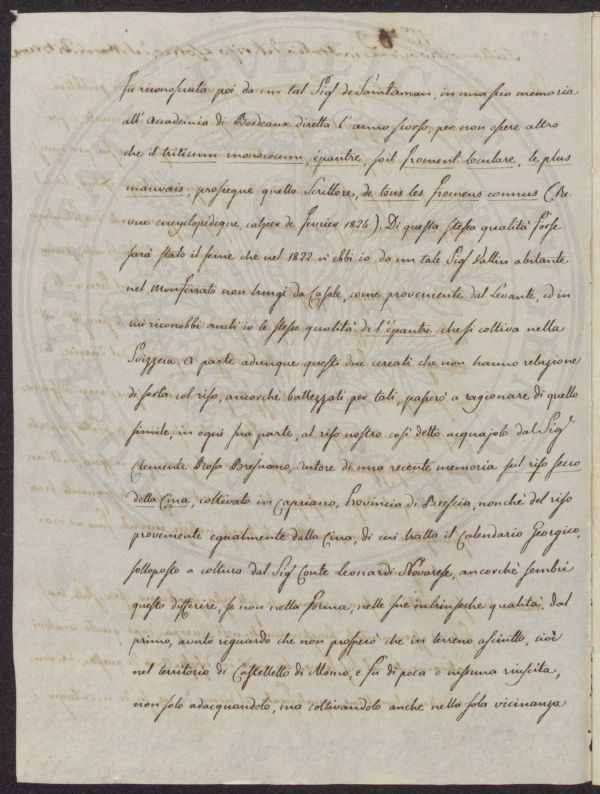 fu riconosciuta poi da un tal Sig.r de Saintaman, in una sua memoria
all'Accademia di Bordeaux diretta l'anno scorso, per non essere altro
che il triticum monococum, épautre, soit froment loculare, le plus
mauvais, prosegue quello Scrittore, de tous les fromens connus (Re-
vue encyclopédique, cahier de Fevrier 1824). Di questa stessa qualità forse
sarà stato il seme che nel 1822 n'ebbi io da un tale Sig.r Vallin abitante
nel Monferrato non lungi da Casale, come proveniente dal Levante, ed in
cui riconobbi anch'io le stesse qualità de l'épautre che si coltiva nella
Svizzera. A parte adunque questi due cereali che non hanno relazione
di sorta col riso, ancorchè battezzati per tali, passerò a ragionare di quello
simile, in ogni sua parte, al riso nostro così detto acquajolo dal Sig.r
Clemente Rosa Bresciano, autore di una recente memoria sul riso secco
della Cina, coltivato in Capriano, Provincia di Brescia, nonchè del riso
proveniente egualmente dalla Cina, di cui tratta il Calendario Georgico,
sottoposto a coltura dal Sig.r Conte Leonardi Novarese, ancorchè sembri
questo differire, se non nella forma, nelle sue intrinseche qualità, dal
primo, avuto riguardo che non prosperò che in terreno asciutto, cioè
nel territorio di Castelletto di Momo, e fu di poca o nissuna riuscita,
non solo adacquandolo, ma coltivandolo anche nella sola vicinanza